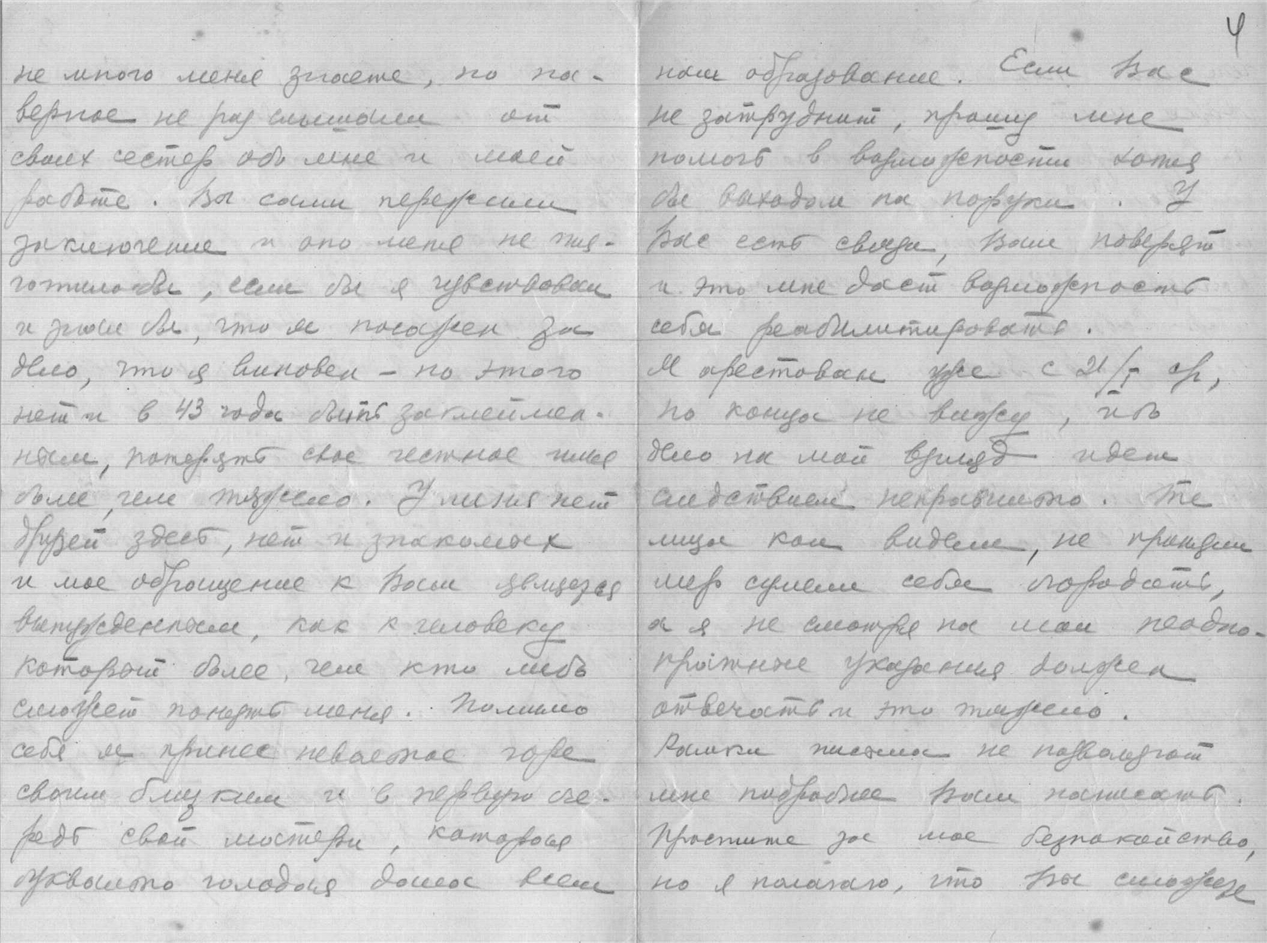 не много меня знаете, но на-
верное не раз слышали от
своих сестер обо мне и моей
работе. Вы сами пережили
заключение и оно меня не тя-
готило бы, если бы я чувствовал
и знал бы, что я посажен за
дело, что я виновен – но этого
нет и в 43 года быть заклеймен-
ным, потерять свое честное имя
более, чем тяжело. У меня нет
друзей здесь, нет и знакомых
и мое обращение к Вам является
вынужденным, как к человеку
который более, чем кто либо
сможет понять меня. Помимо
себя я принес невольное горе
своим близким и в первую оче-
редь свой матери, которая
буквально голодая дала всем
4
нам образование. Если Вас
не затруднит, прошу мне
помочь в возможности хотя
бы выходом на поруки. У
Вас есть связи, Вам поверят
и это мне даст возможность
себя реабилитировать.
Я арестован уже с 21/I с/г,
но конца не вижу, ибо
дело на мой взгляд идет
следствием неправильно. Те
лица кои видели, не приняли
мер сумели себя огородить,
а я не смотря на мои неодно-
кратные указания должен
отвечать и это тяжело.
Рамки письма не позволяют
мне подробнее Вам написать.
Простите за мое безпокойство,
но я полагаю, что Вы сможете